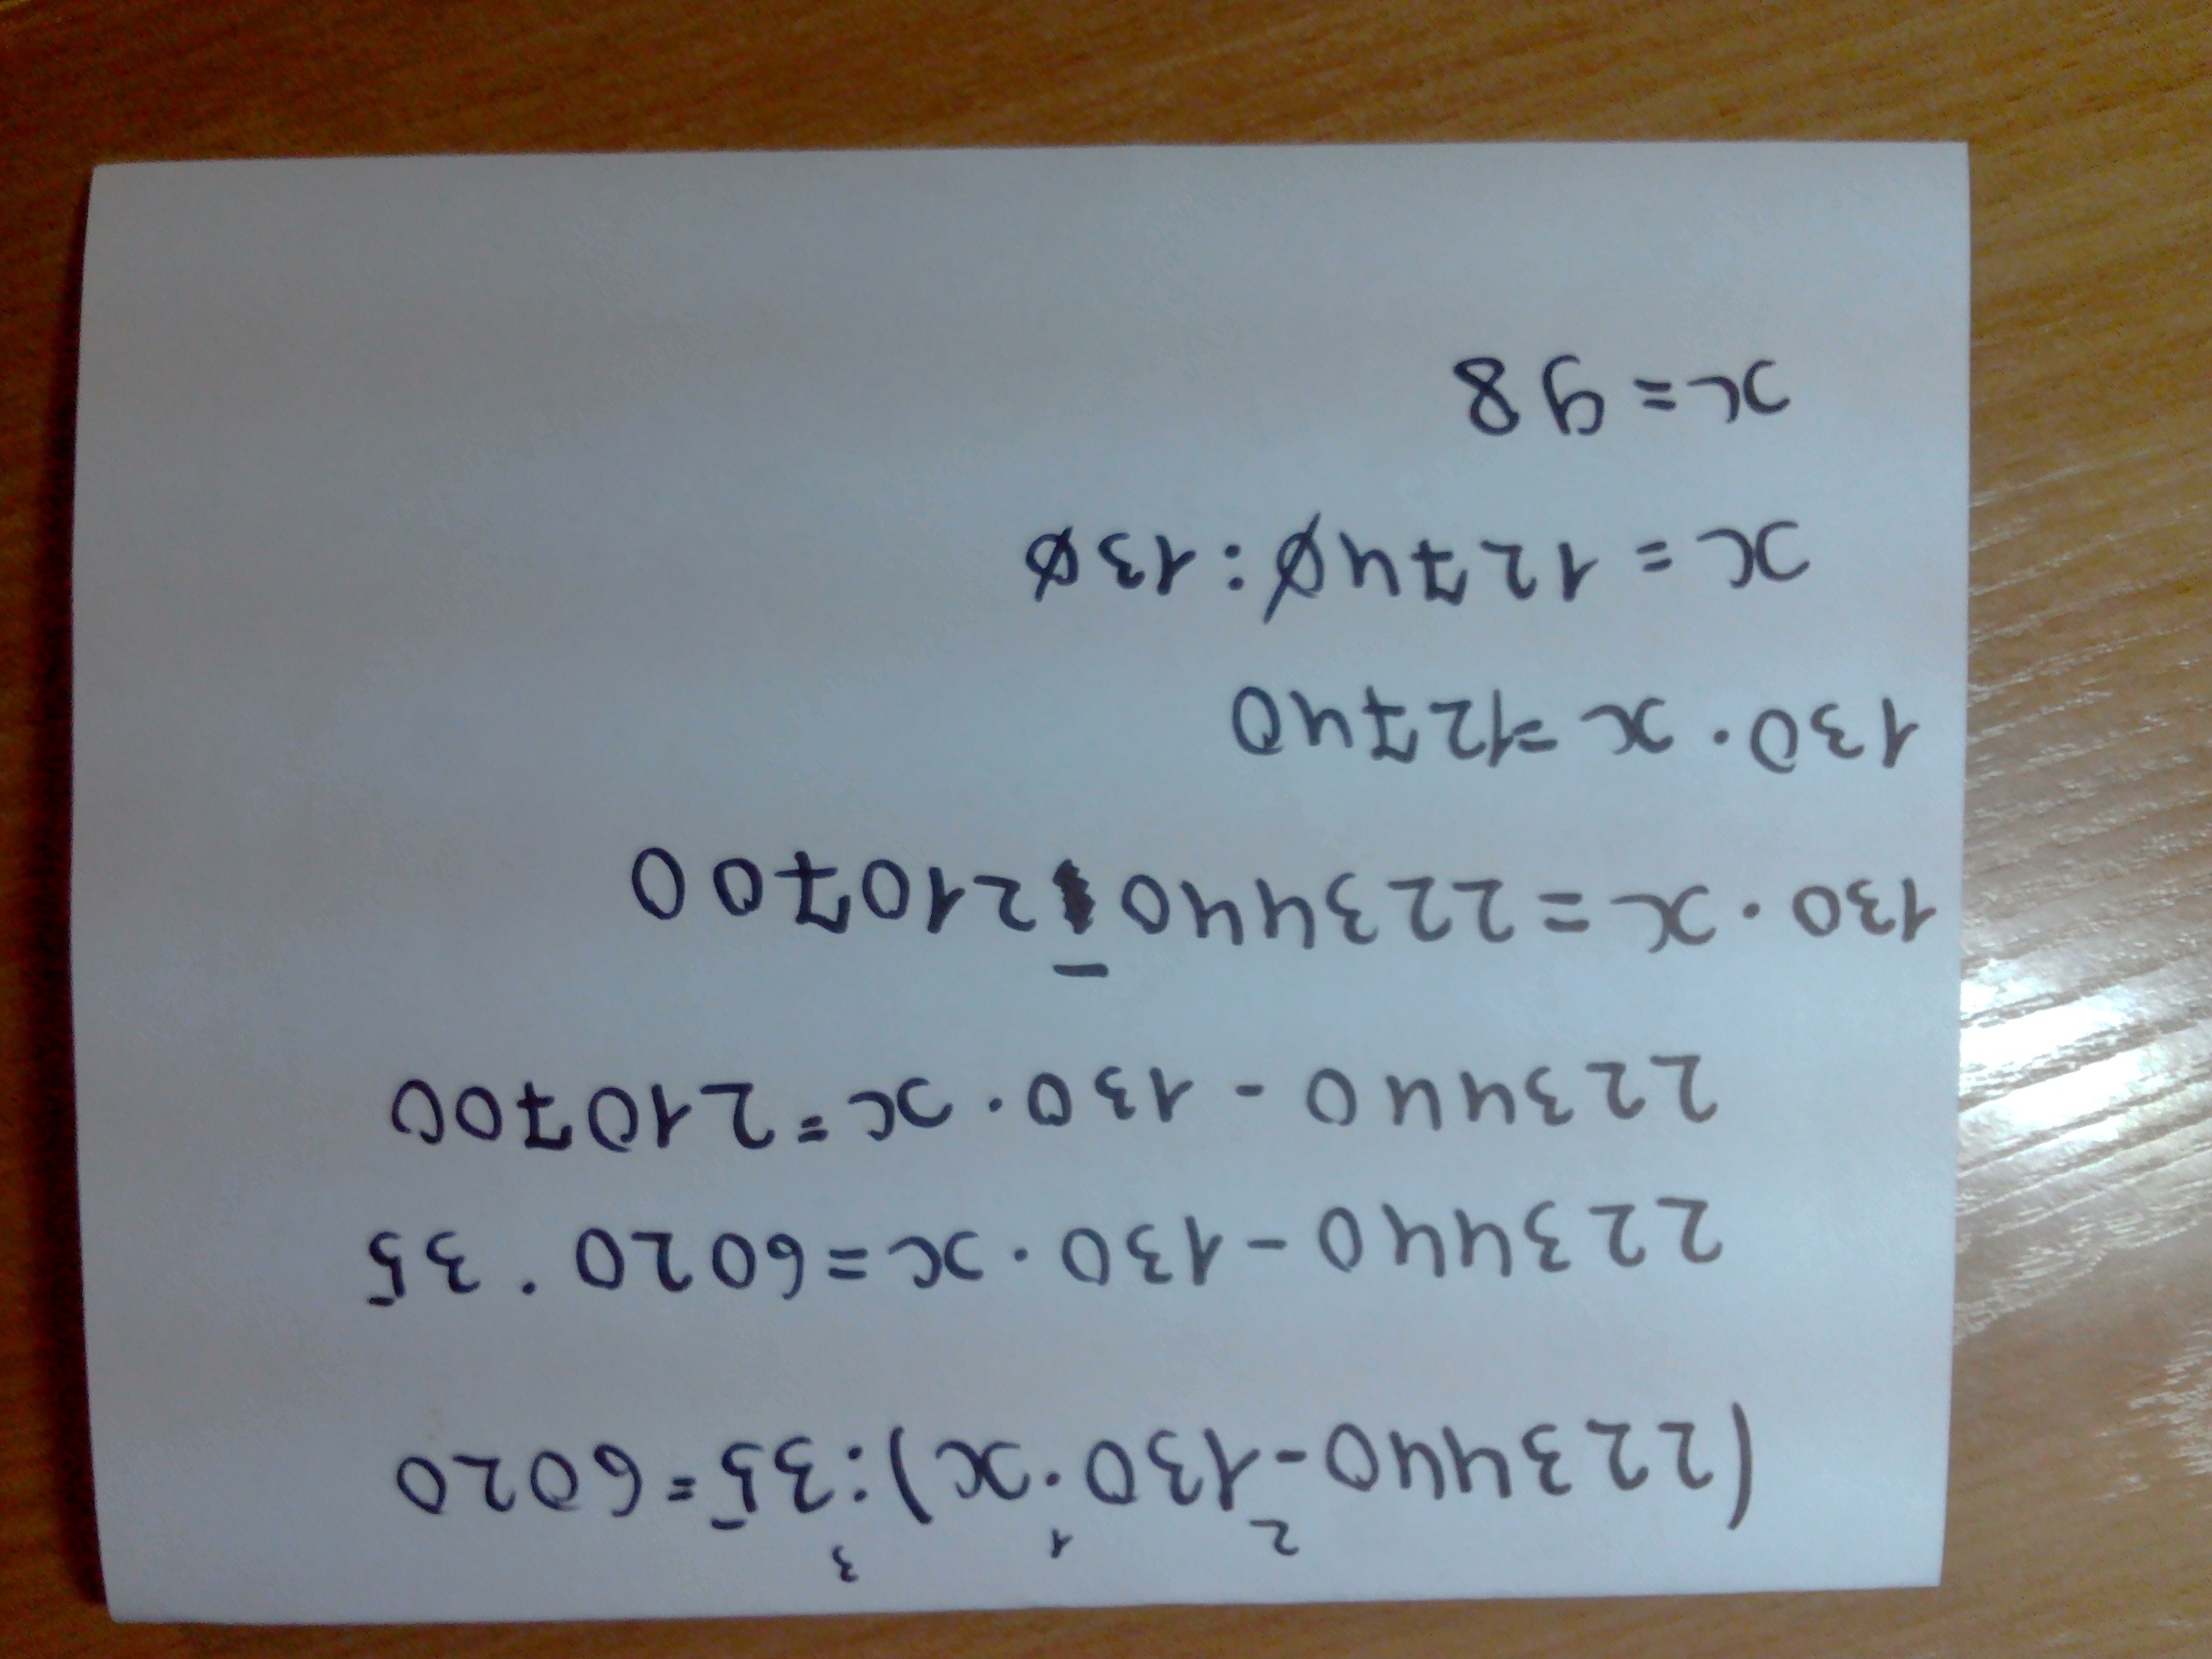 (223440-130·x):35=6020
223440-130·x=6020·35
223440-130·x=210700
130·x=223440-210700
130·x=12740
x=12740:130
x=98